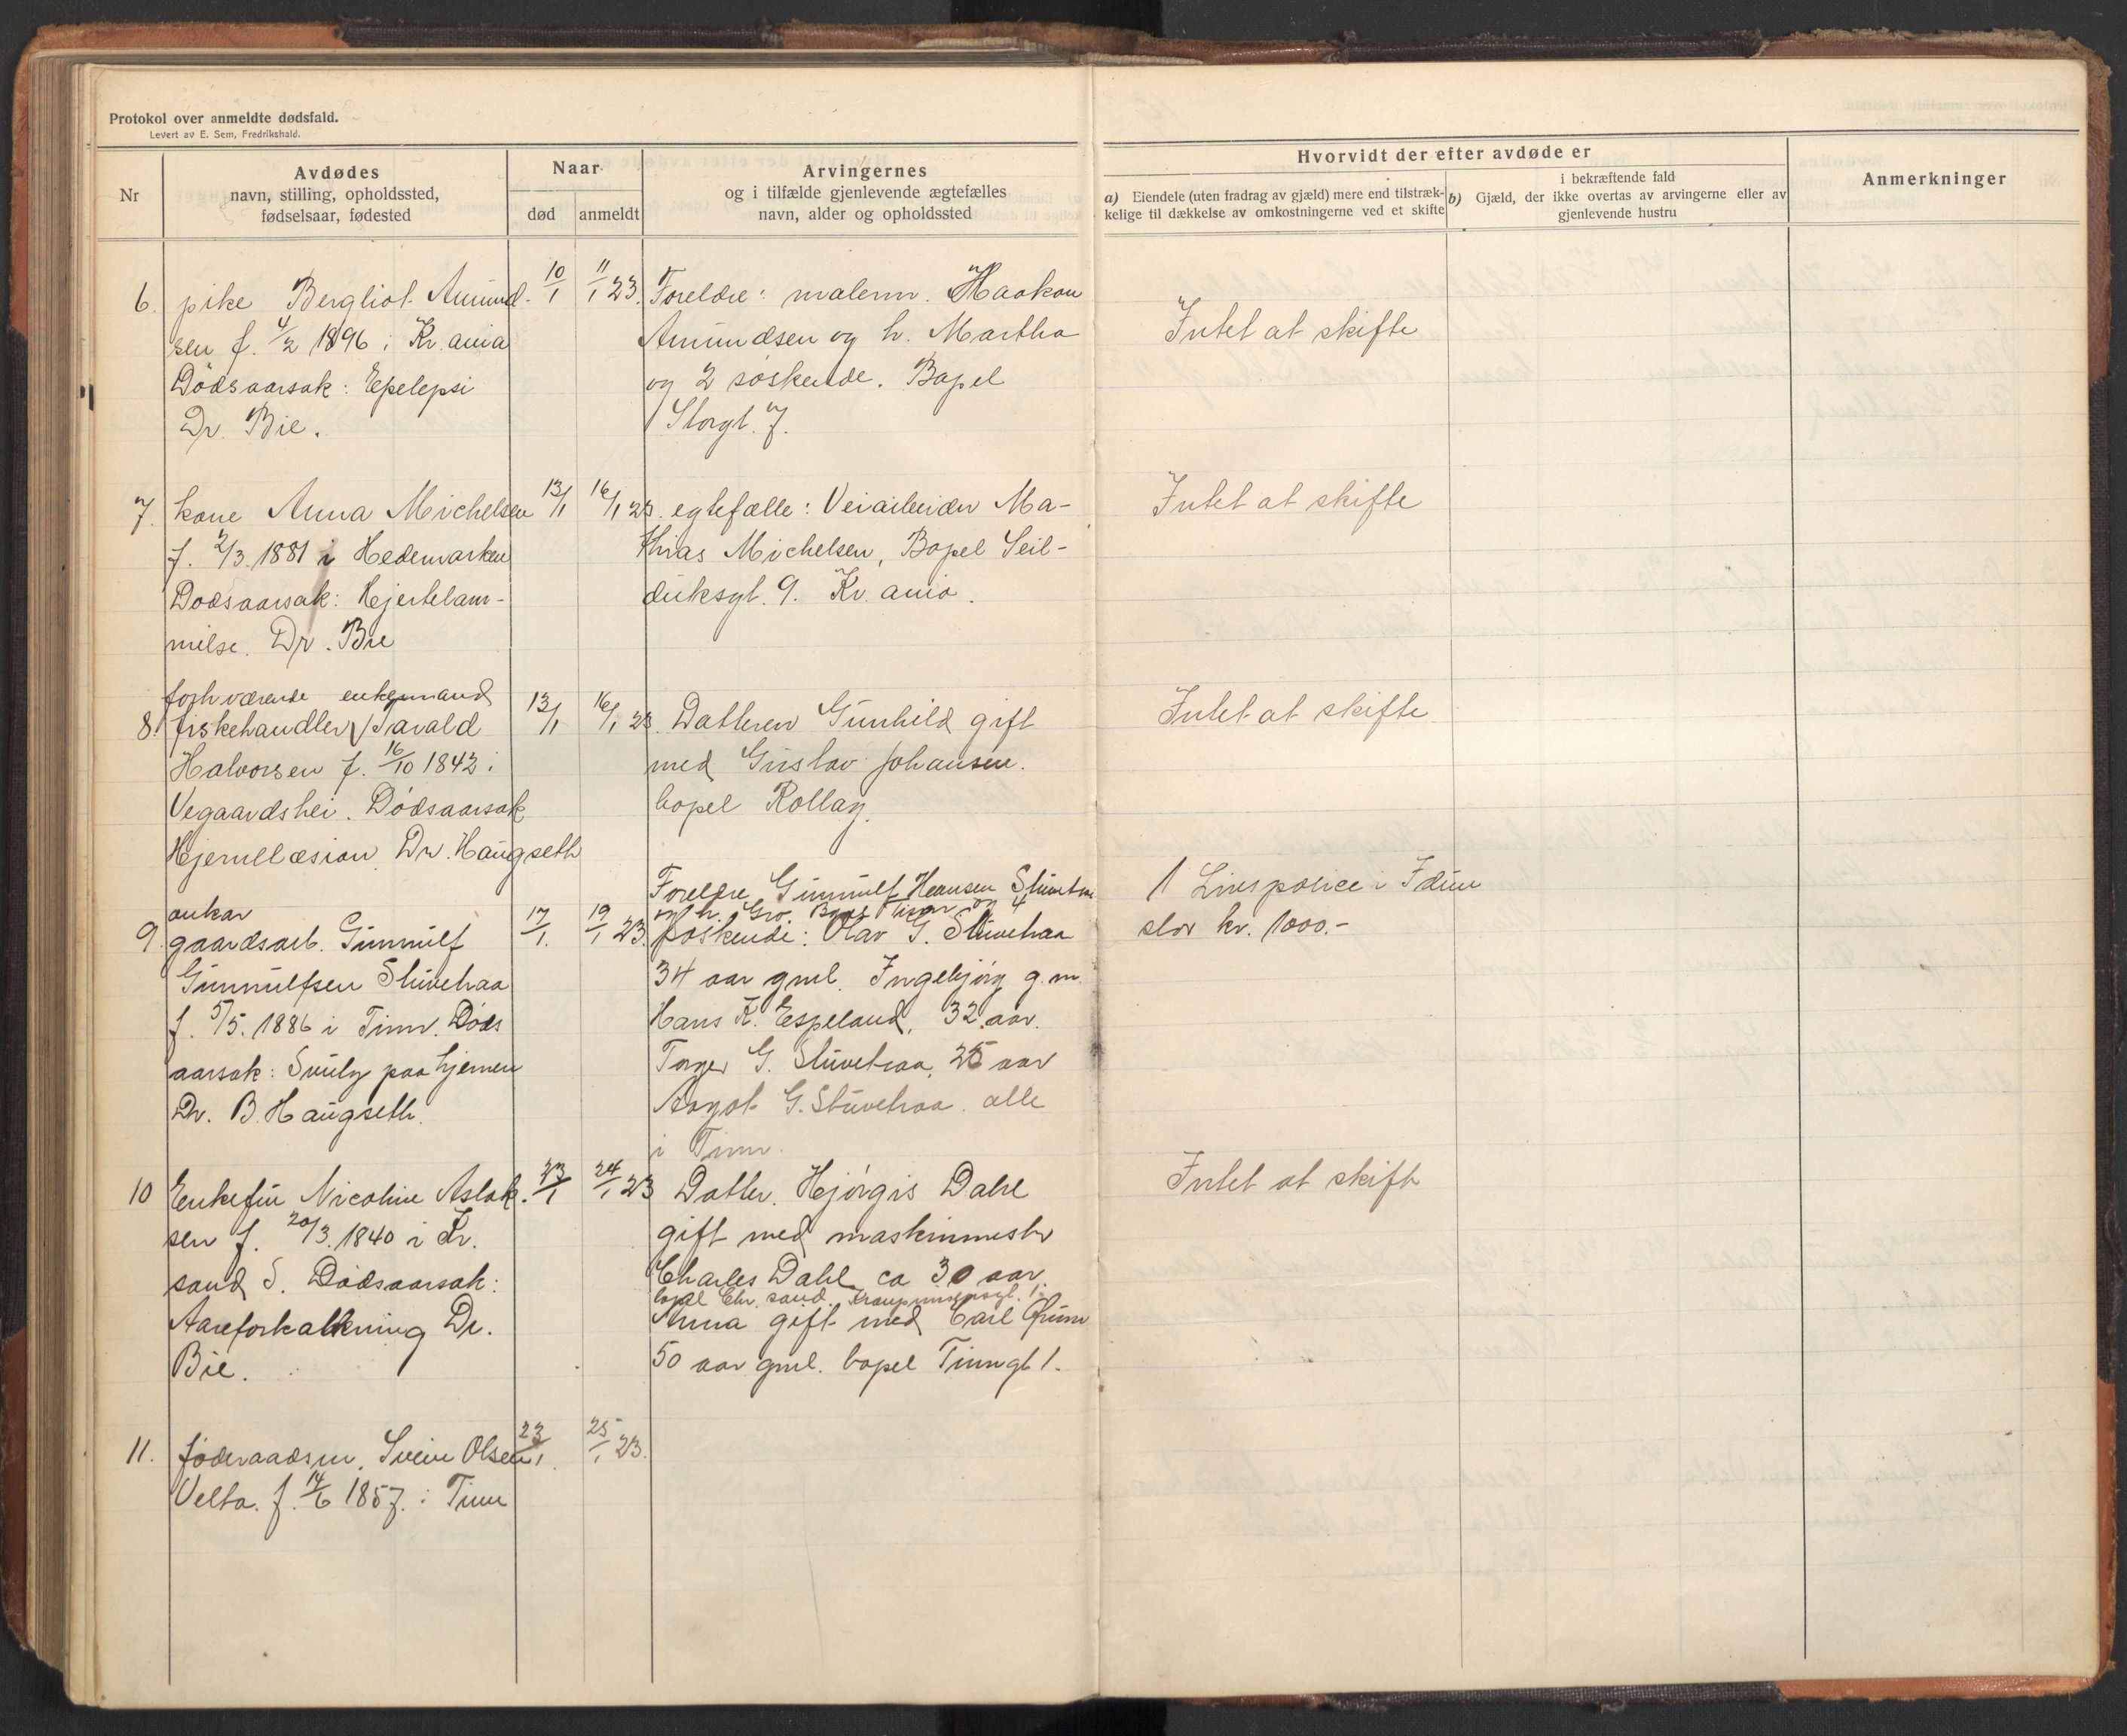 Protokol over anmeldte dødsfald.
Levert av E. Sem, Fredrikshald.
Nr
Avdødes
navn, stilling, opholdssted,
fødselsaar, fødested
Naar
død
anmeldt
Arvingernes
og i tilfælde gjenlevende ægtefælles
navn, alder og opholdssted
Hvorvidt der efter avdøde er
a) Eiendele (uten fradrag av gjæld) mere end tilstræk-
kelige til dækkelse av omkostningerne ved et skifte
i bekræftende fald
b) Gjæld, der ikke overtas av arvingerne eller av
gjenlevende hustru
Anmerkninger
6. pike Bergliot Amund-
sen f. 4/2 1896 i Kr.ania
Dødsaarsak: Epelepsi
Dr. Bie.
10/1
11/1 23.
Foreldre: malerm. Haakon
Amundsen og h. Martha
og 2 søskende. Bopel
Storgt. 7.
Intet at skifte
7. kone Anna Michelsen
f. 2/3. 1881 i Hedemarken
Dødsaarsak: Hjertelam-
melse. Dr. Bie
13/1
16/1 23.
egtefælle: Veiarbeider Ma-
thias Michelsen, Bopel Seil-
duksgt. 9. Kr.ania.
Intet at skifte
forhværende enkemand
8. fiskehandler Tarald
Halvorsen f. 16/10 1843 i
Vegaardshei. Dødsaarsak
Hjernelæsion Dr. Haugseth
13/1
16/1 23.
Datteren Gunhild gift
med Gustav Johansen.
bopel Rollag.
Intet at skifte
unkar
9. gaardsarb. Gunnulf
Gunnulfsen Stuvetraa
f. 5/5. 1886 i Tinn. Døds
aarsak: Svulg paa hjernen
Dr. B. Haugseth.
17/1.
19/1 23.
Foreldre Gunnulf Hansen
og h. Gro. og 4
søskende: Olav G. Stuvetraa
34 aar gml. Ingebjørg g.m.
Hans K. Espeland, 32 aar.
Torger G. Stuvetraa, 25 aar
Aagot G. Stuvetraa. alle
i Tinn.
1 Livspolice i Idun
stor kr. 1000.-
10 Enkefru Nicoline Aslak-
sen f. 20/3. 1840 i Kr.
sand S. Dødsaarsak:
Aareforkalkning Dr.
Bie.
23/1
24/1 23
Datter. Hjørgis Dahl
gift med maskinmester
Charles Dahl ca 30 aar.
bopel Chr. sand. 1.
Anna gift med Carl
50 aar gml. bopel Tinngt 1.
Intet at skift
11. føderaadsm. Svein Olsen
Velta. f. 14/6 1857. i Tinn
23/1.
25/1 23.